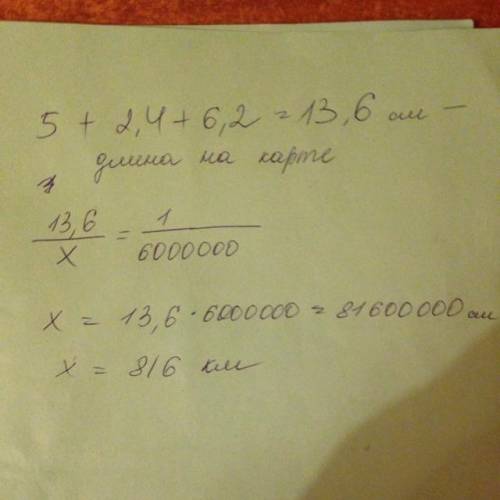 5 + 2,4 + 6,2 = 13,6 см —
длина на карте
13,6 / x = 1 / 6000000
x = 13,6 · 6000000 = 81600000 см
x = 816 км